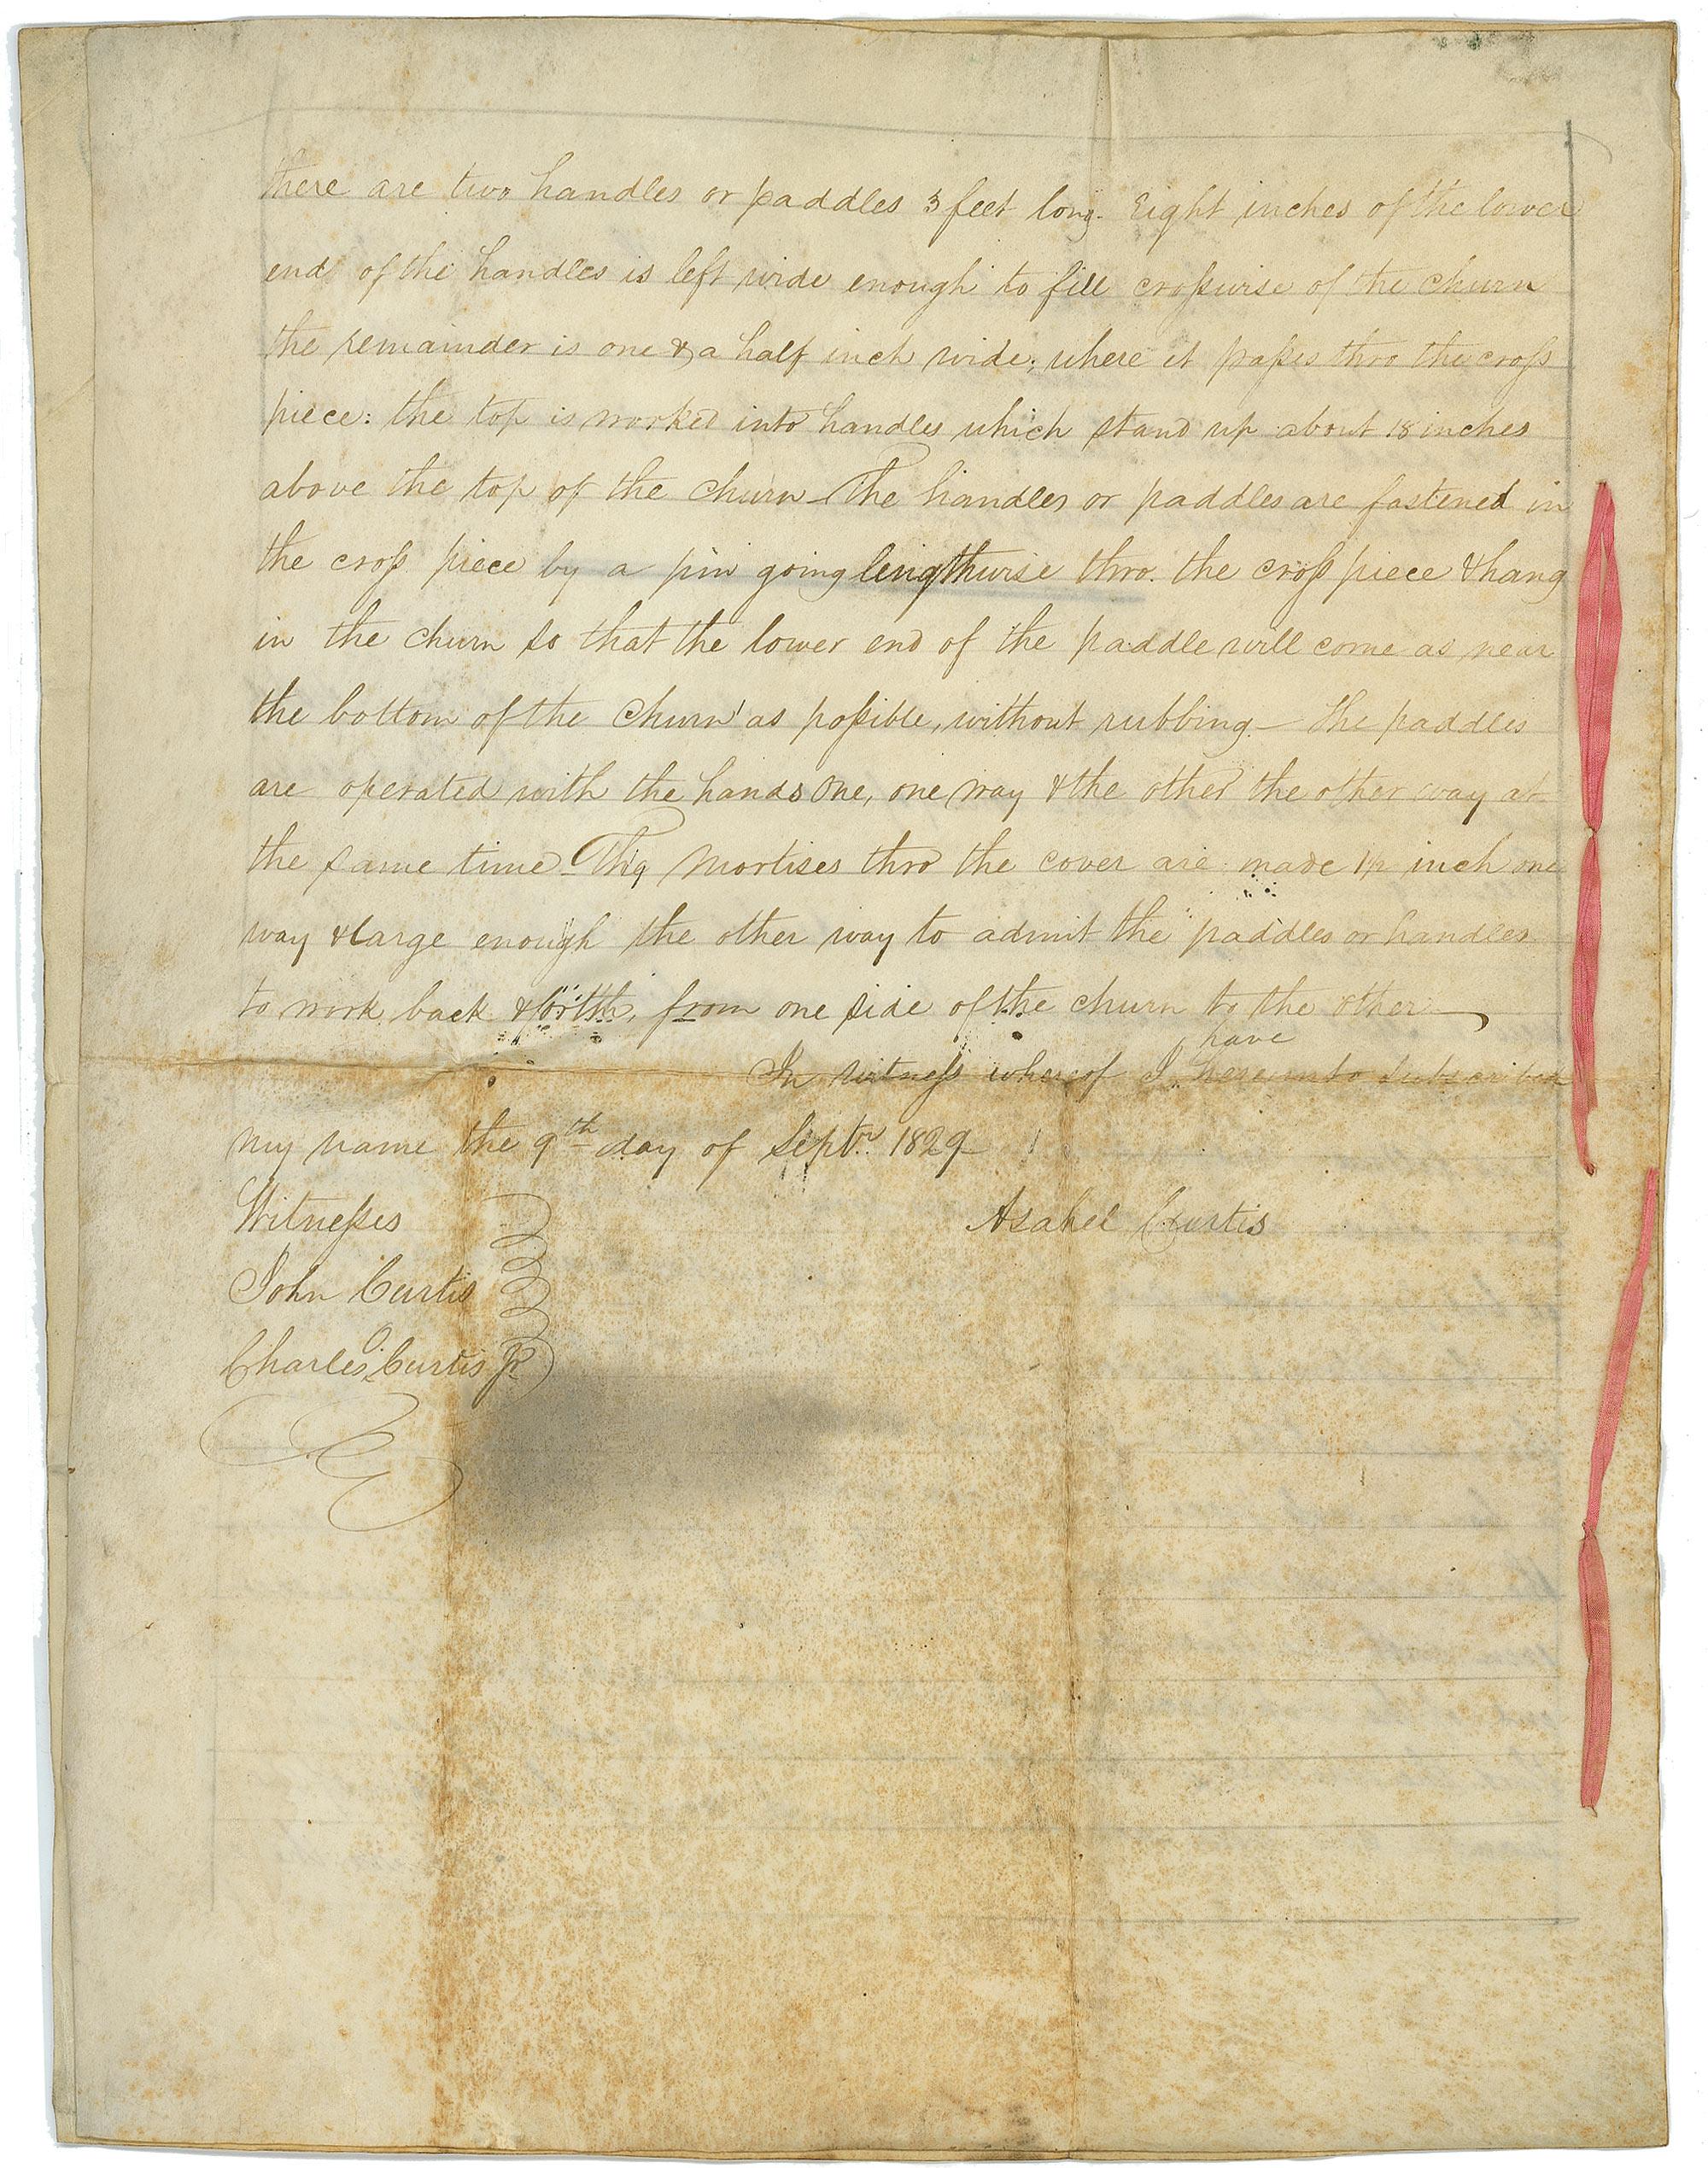 there are two handles or paddles 3 feet long. Eight inches of the lower
end of the handles is left wide enough to fill crosswise of the churn
the remainder is one & a half inch wide; where it passes thro the cross
piece: the top is worked into handles which stand up about 18 inches
above the top of the churn – The handles or paddles are fastened in
the cross piece by a pin going lengthwise thro. the cross piece & hang
in the churn so that the lower end of the paddle will come as near
the bottom of the churn as possible, without rubbing – The paddles
are operated with the hands one, one way & the other the other way at
the same time – The Mortises thro the cover are made 1½ inch one
way & large enough the other way to admit the paddles or handles
to work back & forth, from one side of the churn to the other
have
In witness whereof I hereunto subscribed
my name the 9th day of Septr. 1829
Witnesses
Asahel Curtis
John Curtis
Charles Curtis Jr.